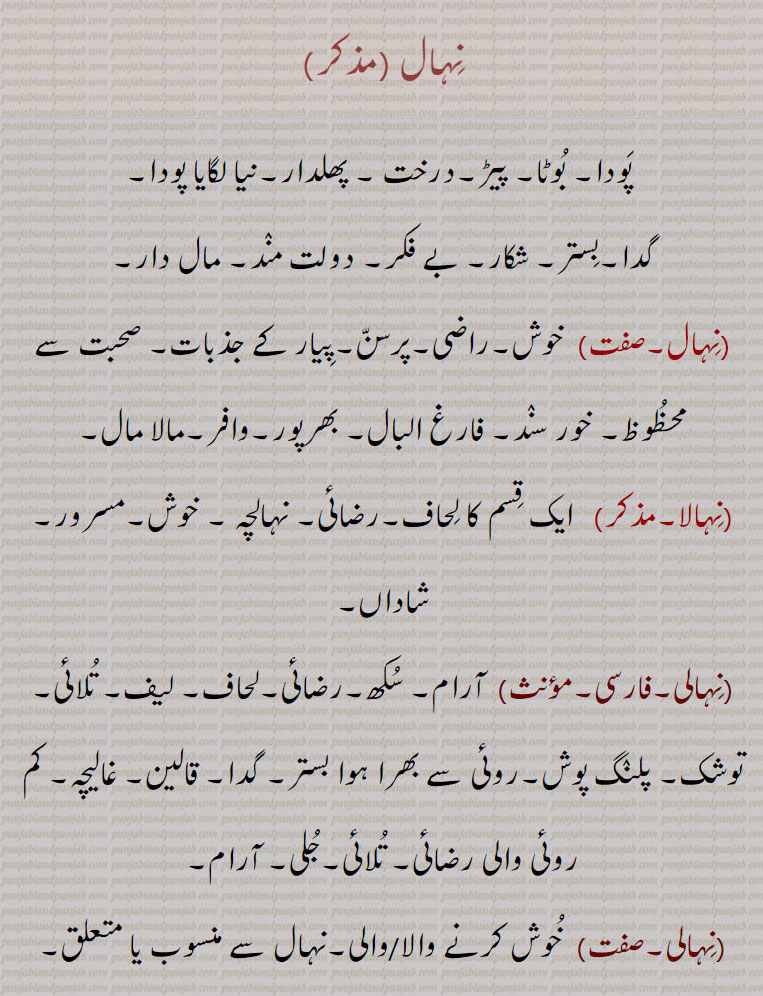 نِہال (مذکر)
پَودا۔ بُوٹا۔ پیڑ۔درخت ۔ پھلدار۔نیا لگایا پودا۔
گدا۔بِستر۔ شکار۔ بے فکر۔ دولت منْد۔ مال دار۔
(نِہال۔صفت) خوش۔راضی۔پرسنّ۔پِیار کے جذبات۔ صحبت سے
محظُوظ۔ خور سنْد۔ فارغ البال۔ بھرپور۔وافر۔مالا مال۔
(نِہالا۔مذکر) ایک قِسم کا لِحاف۔رضائی۔ نہالچہ ۔ خوش۔مسرور۔
شاداں۔
(نِہالی۔فارسی۔مؤنث) آرام۔ سُکھ۔رضائی۔لحاف۔ لیف۔ تُلائی۔
توشک۔ پلنْگ پوش۔روئی سے بھرا ہوا بستر۔ گدا۔ قالین۔ غالیچہ۔ کم
روئی والی رضائی۔ تُلائی۔جُلی۔ آرام۔
(نِہالی۔صفت) خُوش کرنے والا/والی۔نہال سے منسوب یا متعلق۔